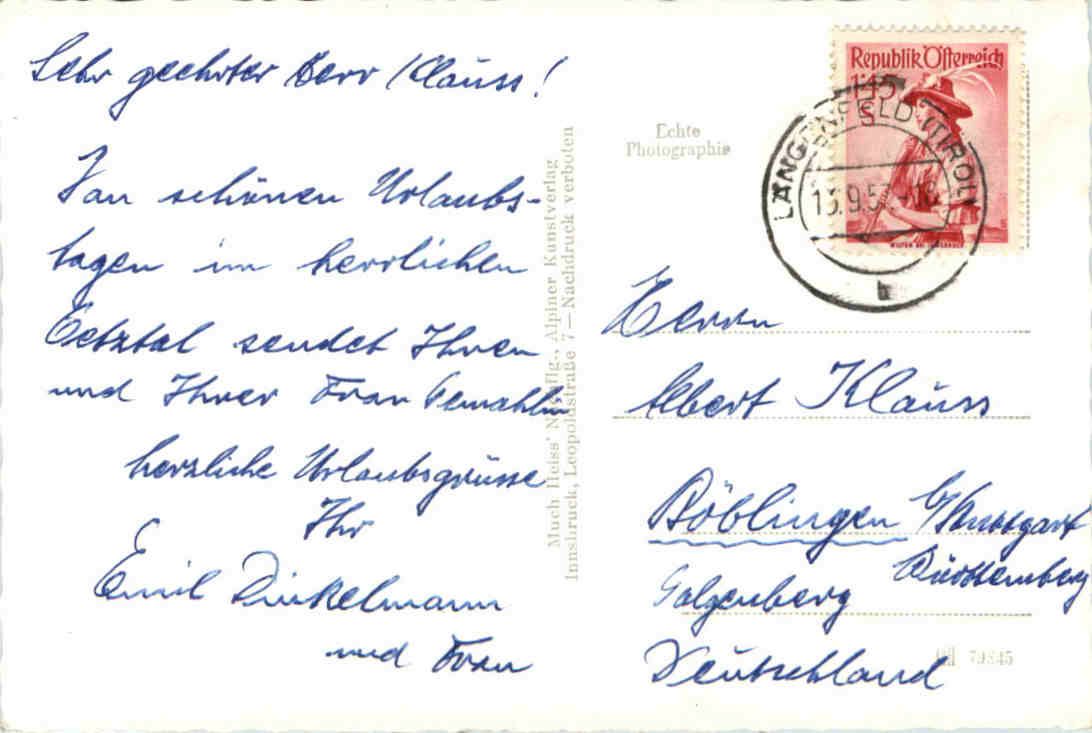 Sehr geehrter Herr Klauss!
Von schönen Urlaubs-
tagen im herrlichen
Oetztal sendet Ihnen
und Ihrer Frau Gemahlin
herzliche Urlaubsgrüsse
Ihr
Emil Dinkelmann
und Frau
Much Heiss' Nflg., Alpiner Kunstverlag
Innsbruck, Leopoldstraße 7 — Nachdruck verboten
Echte
Photographie
Republik Österreich
1·45
S
WILTEN BEI INNSBRUCK
LÄNGENFELD (TIROL)
13.9.5
b
Herrn
Albert Klauss
Böblingen b/Stuttgart
Württemberg
Galgenberg
Deutschland
79845